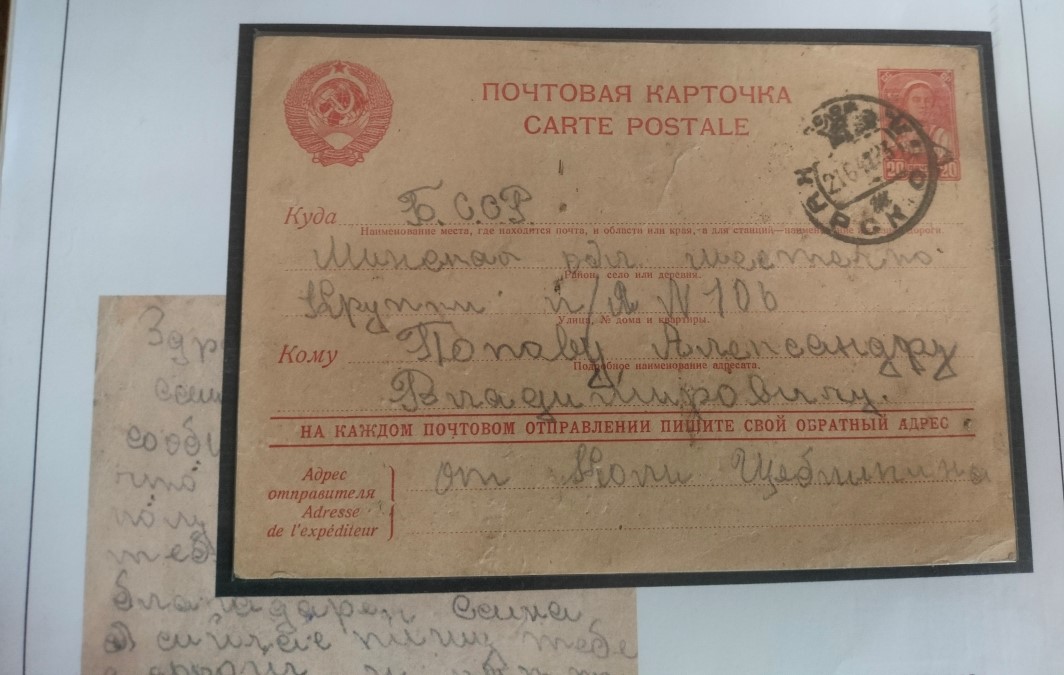 ПОЧТОВАЯ КАРТОЧКА
CARTE POSTALE
20 20
Куда Б.С.С.Р.
Наименование места, где находится почта, и области или края, а для станций—наименование дороги.
Минская обл. местечко
Район, село или деревня.
Крупки п/я N 106
Улица, № дома и квартиры.
Кому Попову Александру
Подробное наименование адресата.
Владимировичу.
НА КАЖДОМ ПОЧТОВОМ ОТПРАВЛЕНИИ ПИШИТЕ СВОЙ ОБРАТНЫЙ АДРЕС
Адрес
отправителя
Adresse
de l'expéditeur
от Коли
Здра
сооб
что
полу
теб
благадарен Саша
пишу тебе